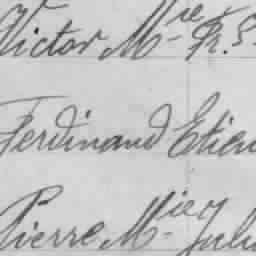 Victor M^re R. S.
Ferdinand Etien
Pierre M^ie J Juli